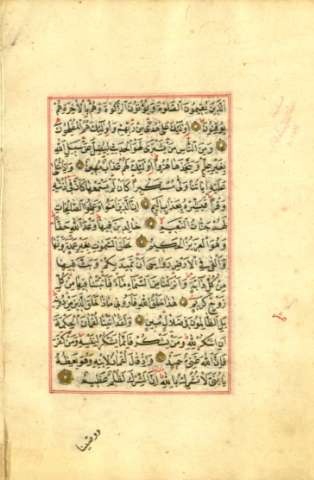 الذين يقيمون الصلوة ويؤتون الزكوة وهم بالاخرة هم
يوقنون اولئك على هدى من ربهم واولئك هم المفلحون
ومن الناس من يشتري لهو الحديث ليضل عن سبيل الله
بغير علم ويتخذها هزوا اولئك لهم عذاب مهين واذا تتلى
عليه اياتنا ولى مستكبرا كان لم يسمعها كان في اذنيه
وقرا فبشره بعذاب اليم ان الذين امنوا وعملوا الصالحات
لهم جنات النعيم خالدين فيها وعد الله حقا
وهو العزيز الحكيم خلق السموات بغير عمد ترونها
والقى في الارض رواسي ان تميد بكم وبث فيها
من كل دابة وانزلنا من السماء ماء فانبتنا فيها من كل
زوج كريم هذا خلق الله فاروني ماذا خلق الذين من دونه
بل الظالمون في ضلال مبين ولقد اتينا لقمان الحكمة
ان اشكر لله ومن يشكر فانما يشكر لنفسه ومن كفر
فان الله غني حميد واذ قال لقمان لابنه وهو يعظه
يا بني لا تشرك بالله ان الشرك لظلم عظيم
ووصينا